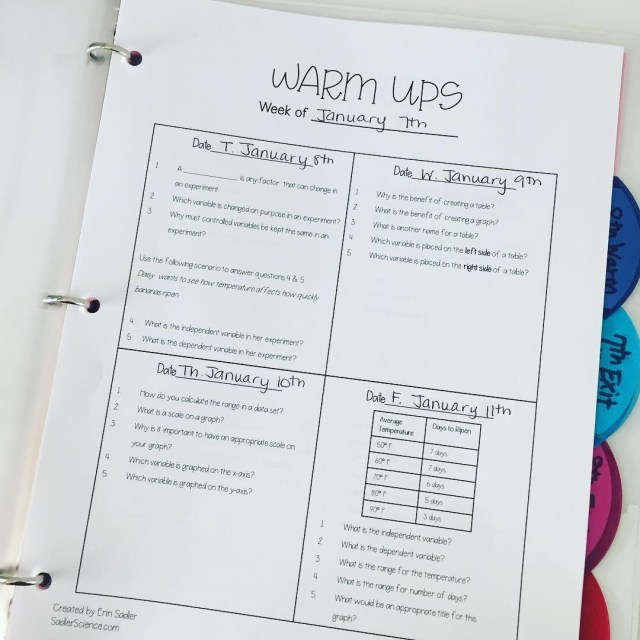 WARM UPS
Week of January 7th
Date T. January 8th
1 A ____________ is any factor that can change in
an experiment.
2 Which variable is changed on purpose in an experiment?
3 Why must controlled variables be kept the same in an
experiment?
Use the following scenario to answer questions 4 & 5
Daisy wants to see how temperature affects how quickly
bananas ripen.
4 What is the independent variable in her experiment?
5 What is the dependent variable in her experiment?
Date W. January 9th
1 Why is the benefit of creating a table?
2 What is the benefit of creating a graph?
3 What is another name for a table?
4 Which variable is placed on the left side of a table?
5 Which variable is placed on the right side of a table?
Date Th. January 10th
1 How do you calculate the range in a data set?
2 What is a scale on a graph?
3 Why is it important to have an appropriate scale on
your graph?
4 Which variable is graphed on the x-axis?
5 Which variable is graphed on the y-axis?
Date F. January 11th
Average Temperature Days to Ripen
50° F 7 days
60° F 7 days
70° F 6 days
80° F 5 days
90° F 3 days
1 What is the independent variable?
2 What is the dependent variable?
3 What is the range for the temperature?
4 What is the range for number of days?
5 What would be an appropriate title for this
graph?
Created by Erin Sadler
SadlerScience.com
8th Warm
7th Exit